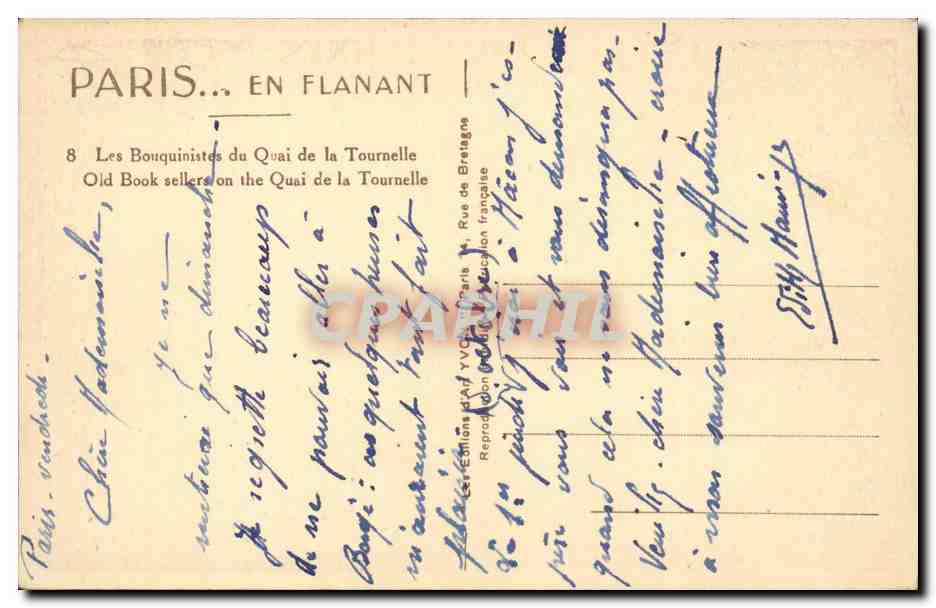 PARIS... EN FLANANT
8 Les Bouquinistes du Quai de la Tournelle
Old Book sellers on the Quai de la Tournelle
Les Editions d'Art YVON, Paris, Rue de Bretagne
Reproduction interdite française
CPARHIL
Paris - vendredi -
Chère Mademoiselle,
Je ne
rentrerai que dimanche -
Je regrette beaucoup
de ne pouvoir aller à
Bougé : ces quelques heures
m'auraient tant fait
plaisir.
Dès le jeudi à Mâcon j'es-
père vous voir et vous demander
quand cela ne vous désoeuvrera pas -
Veuillez, chère Mademoiselle - croire
à mon souvenir bien affectueux